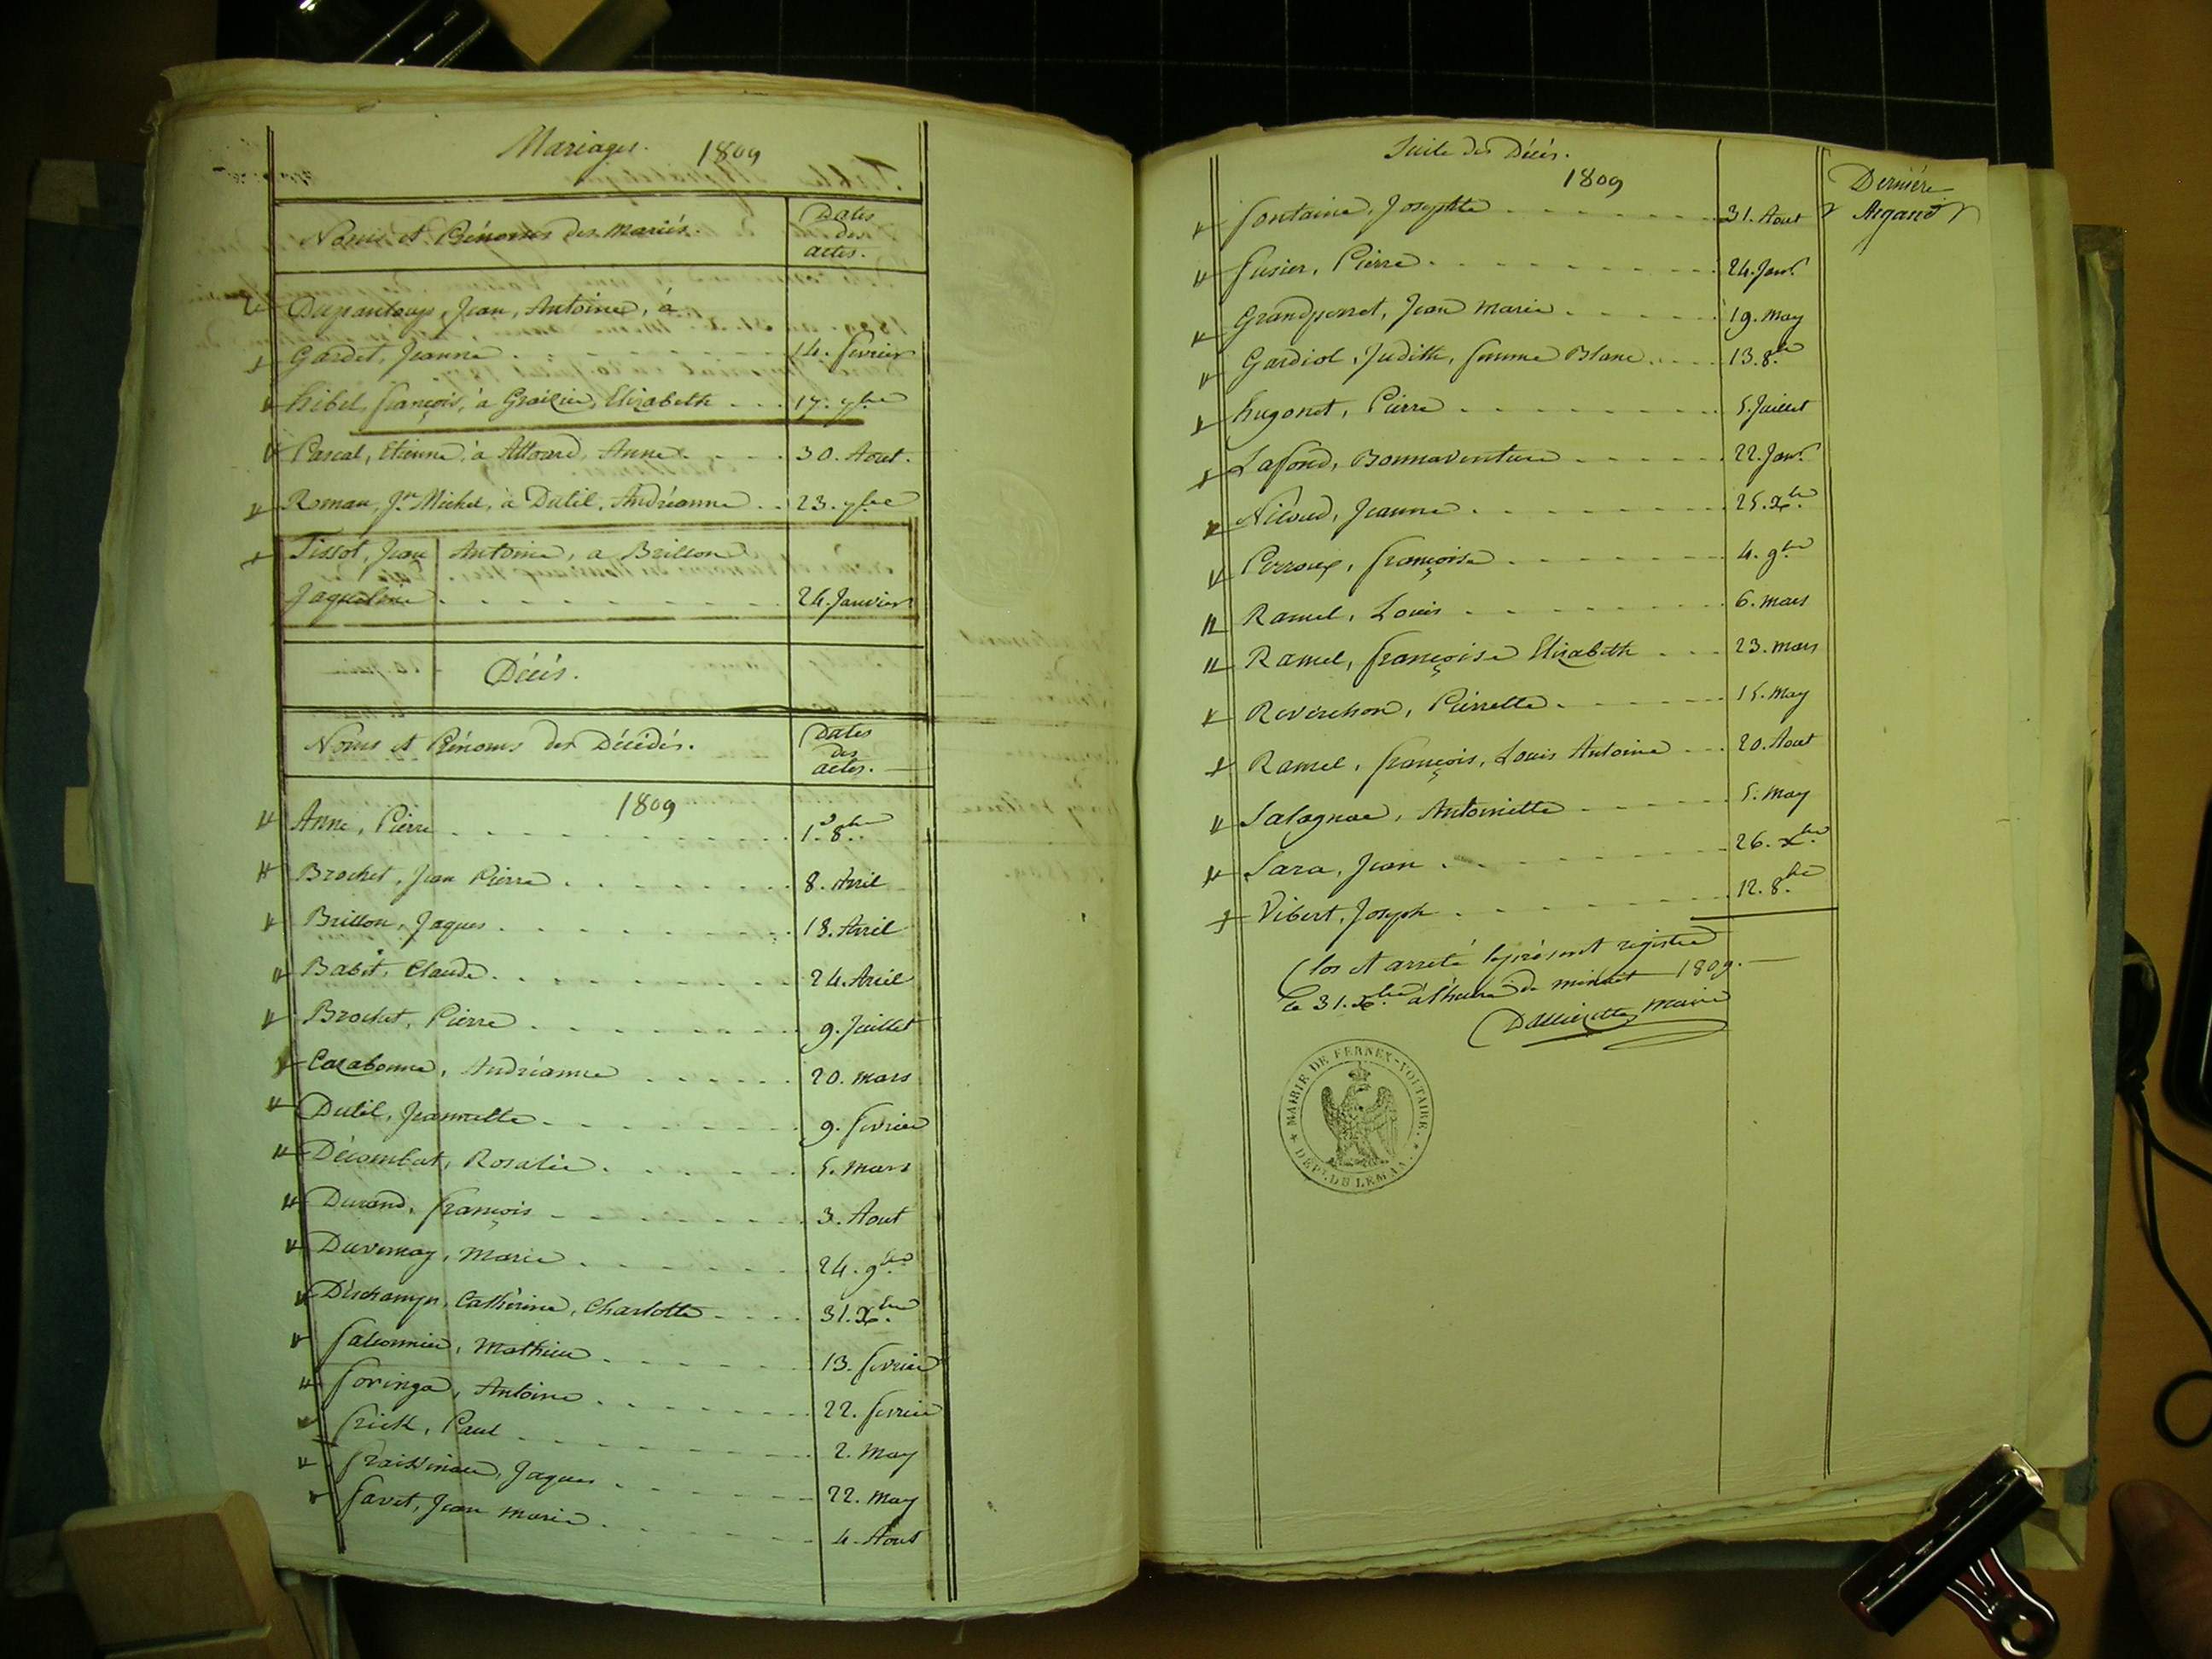 Mariages. 1809
Noms et Prénoms des mariés. Dates des actes.
Dupanloup, Jean, Antoine, à
Gardet, Jeanne 14. fevrier
hibel, françois, à Elizabeth 17. 7bre
Pascal, Etienne, à Attoard, Anne 30. Aout.
Roman, Jn. Michel, à Dutil, Andréanne 23. 7bre
Tissot, Jean Antoine, a Brillon
Jaqueline 24. Janvier
Décès.
Noms et Prénoms des Décédés. Dates des actes.
1809
Anne, Pierre 1er 8bre
Brochet, Jean Pierre 8. Avril
Brillon, Jaques 18. Avril
Babet, Claude 24. Avril
Brochet, Pierre 9. Juillet
Cazabonne, Andréanne 20. mars
Dutil, Jeannette 9. fevrier
Décombat, Rosalie 5. mars
Durand, françois 3. Aout
Duvernay, Marie 24. 9bre
Déschamps, Cathérine, Charlotte 31. Xbre
falconnier, Mathieu 13. fevrier
foringa, Antoine 22. fevrier
frick, Paul 2. May
fraissinau, Jaques 22. May
favet, Jean marie 4. Aout
Suite des Décès.
1809
fontaine, Josephte 31. Aout
Derniére
Argand
fusier, Pierre 24. Janr.
Grandperret, Jean Marie 19. May
Gardiol, Judith, femme Blanc 13. 8bre
hugonet, Pierre 5. Juillet
Lafond, Bonnaventure 22. Janr.
Nicoud, Jeanne 25. Xbre
Perroux, françoise 4. 9bre
Ramel, Louis 6. mars
Ramel, françoise Elizabeth 23. mars
Revérchon, Pierrette 15. May
Ramel, françois, Louis Antoine 20. Aout
Salagnac, Antoinette 5. May
Sara, Jean 26. Xbre
Vibert, Joseph 12. 8bre
Clos et arreté le présent registre
Le 31. Xbre à l'heure de minuit 1809.
maire
MAIRIE DE FERNEY-VOLTAIRE.
DEPT. DU LEMAN.